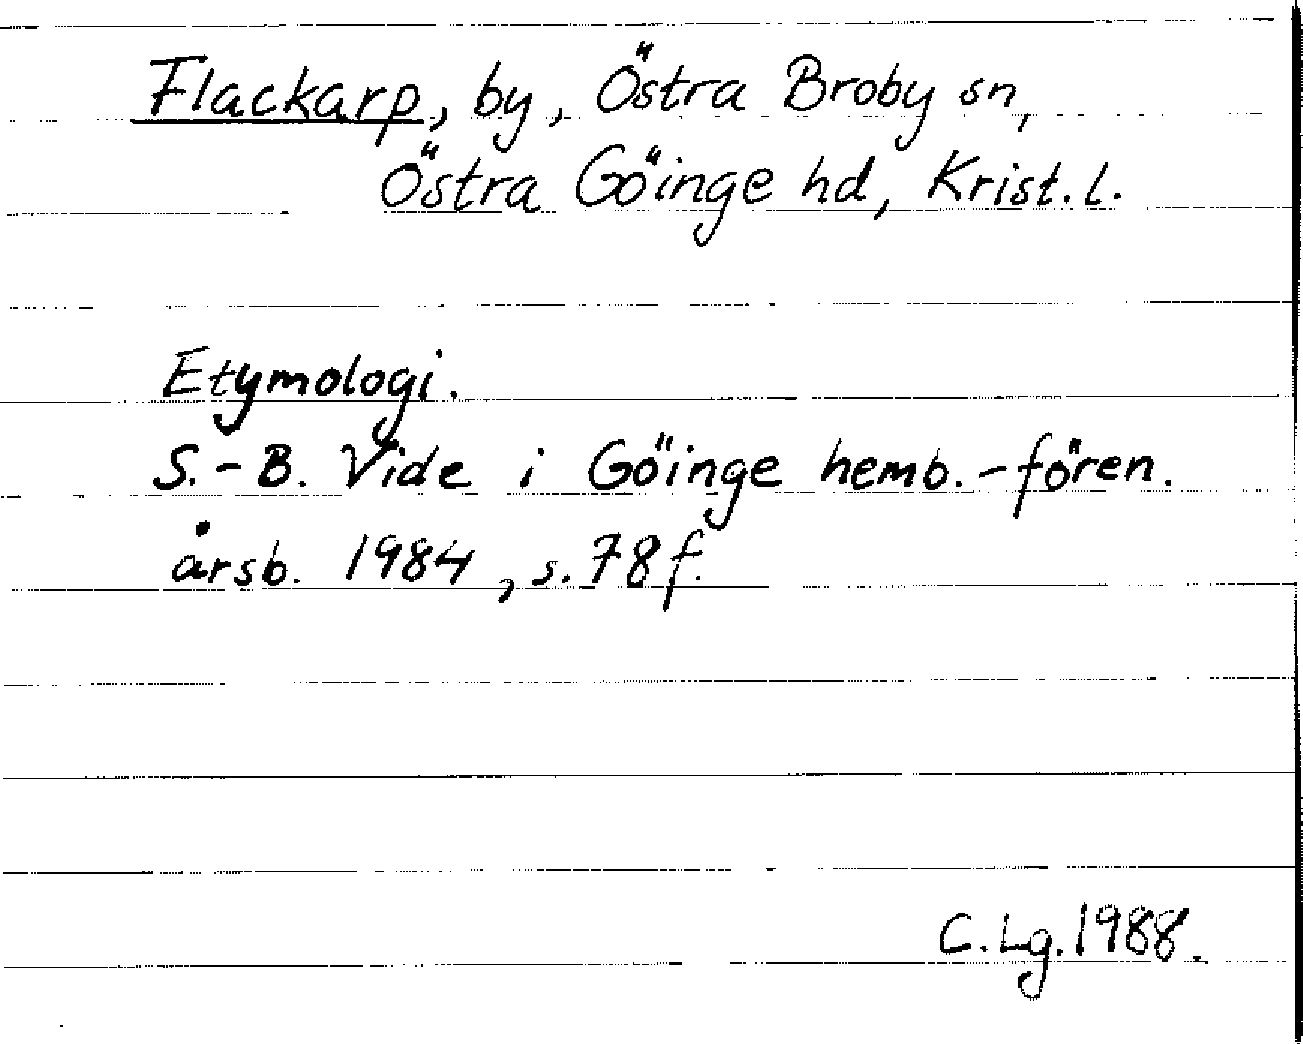 Flackarp, by, Östra Broby sn,
Östra Göinge hd, Krist. l.
Etymologi.
S.-B. Vide i Göinge hemb.-fören.
årsb. 1984, s. 78 f.
C. Lg. 1988.